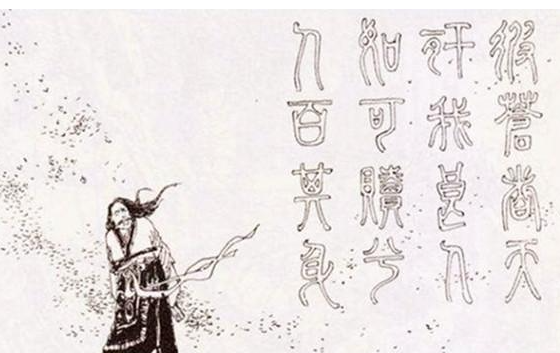 彼蒼者天
歼我良人
如可贖兮
人百其身